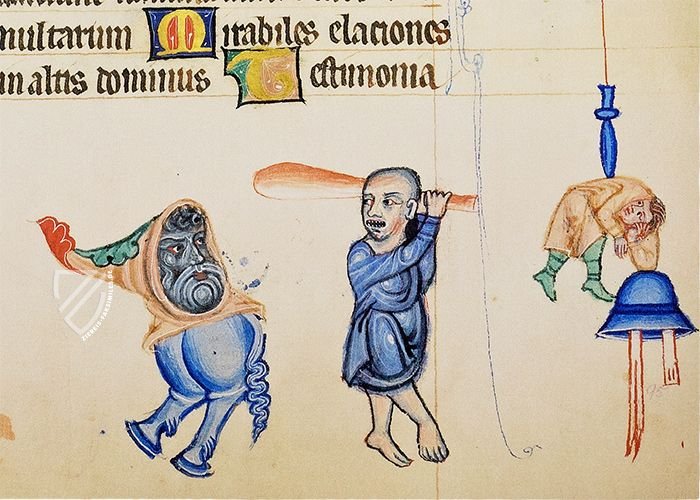 multarum Mirabiles elaciones
in altis dominus Testimonia